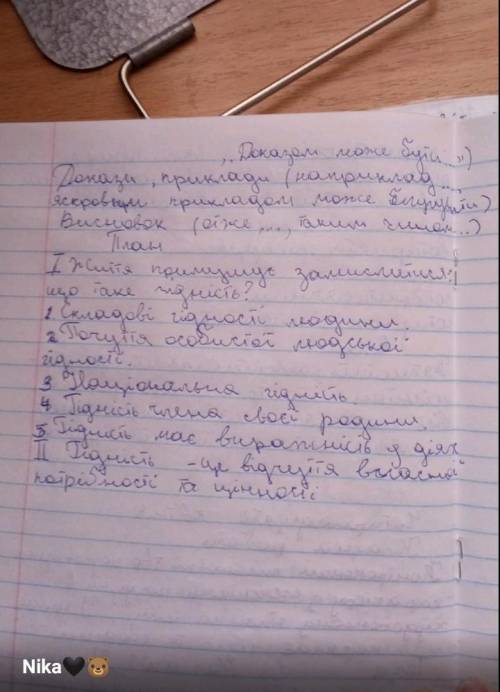 „Доказом може бути...")
Докази, приклади (наприклад...,
яскравим прикладом може
Висновок (отже,..., таким чином...)
План
I Життя примушує замислитися:
що таке гідність?
1. Складові гідності людини.
2. Почуття особистої людської
гідності.
3. Національна гідність.
4. Гідність члена своєї родини.
5 Гідність має виражність у діях
II Гідність - це відчуття власної
потрібності та цінності
Nika🖤🐻